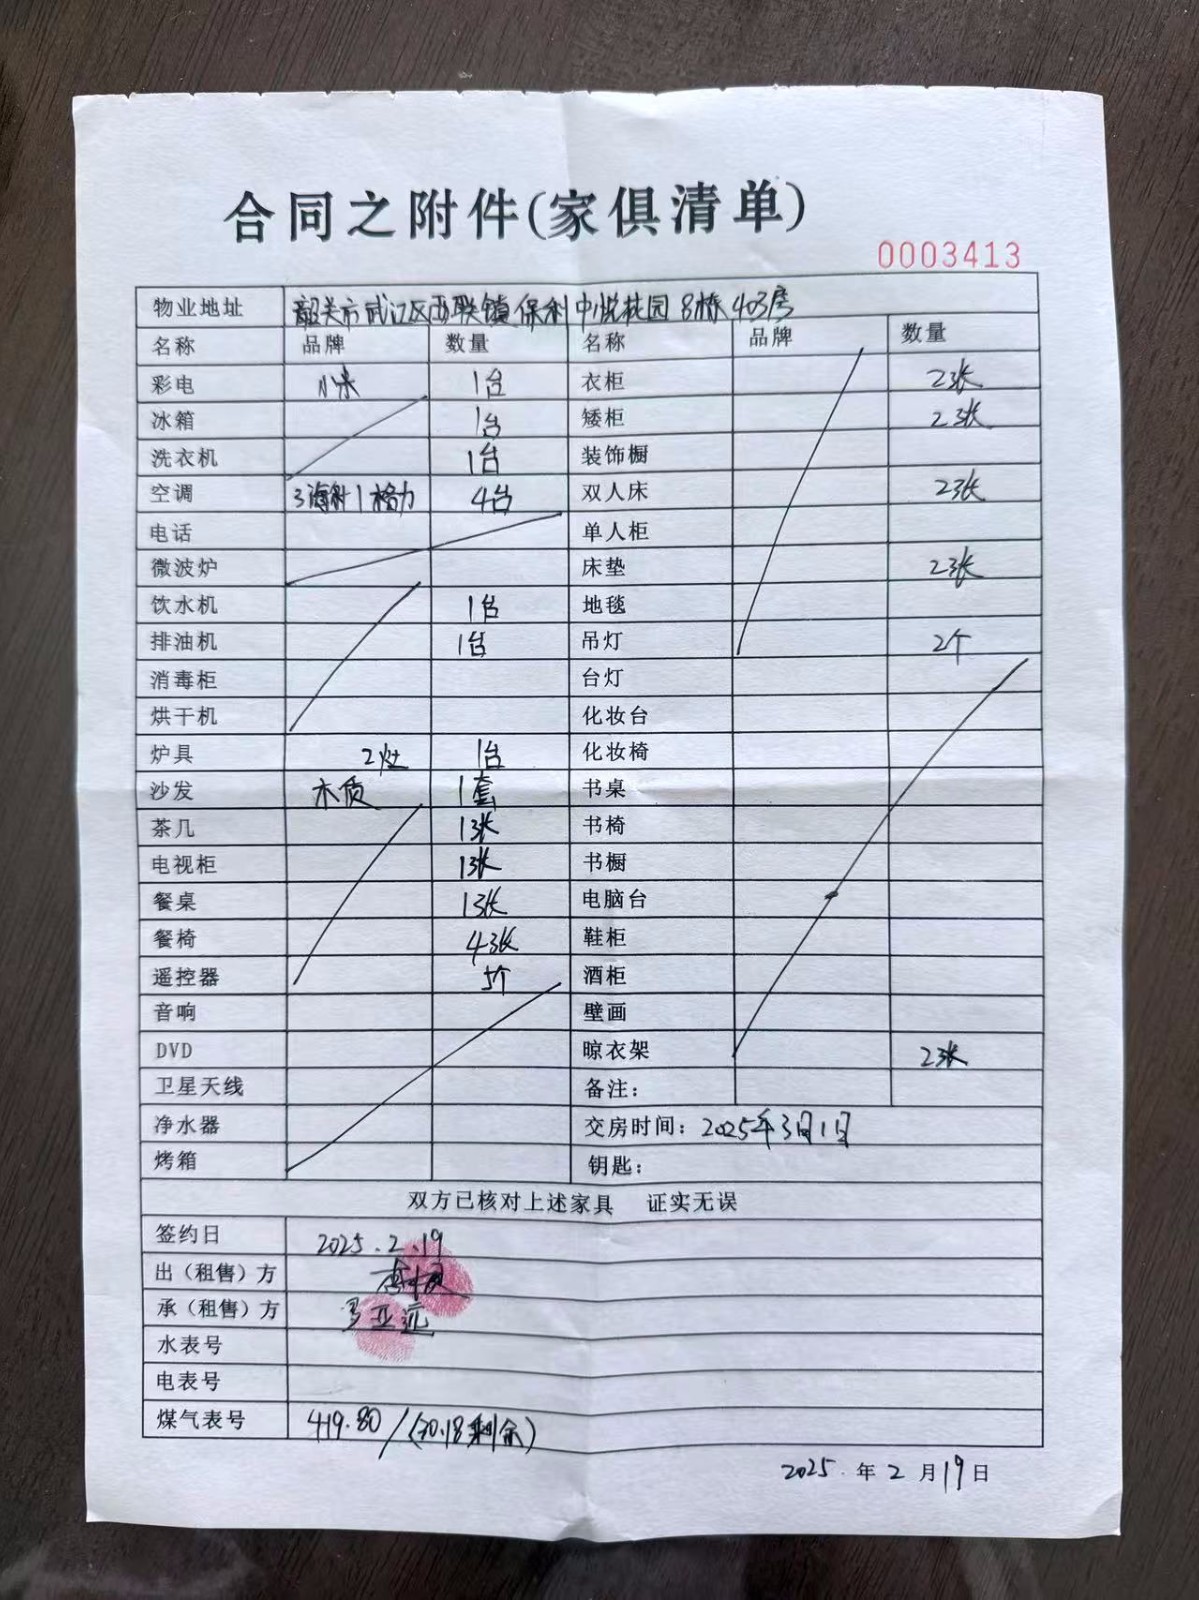 合同之附件(家俱清单)
0003413
物业地址 韶关市武江区西联镇保利中悦花园8栋403房
名称 品牌 数量 名称 品牌 数量
彩电 小米 1台 衣柜 2张
冰箱 1台 矮柜 2张
洗衣机 1台 装饰橱
空调 3海尔1格力 4台 双人床 2张
电话 单人柜
微波炉 床垫 2张
饮水机 1台 地毯
排油机 1台 吊灯 2个
消毒柜 台灯
烘干机 化妆台
炉具 2灶 1台 化妆椅
沙发 木质 1套 书桌
茶几 1张 书椅
电视柜 1张 书橱
餐桌 1张 电脑台
餐椅 4张 鞋柜
遥控器 5个 酒柜
音响 壁画
DVD 晾衣架 2张
卫星天线 备注：
净水器 交房时间：2025年3月1日
烤箱 钥匙：
双方已核对上述家具 证实无误
签约日 2025.2.19
出（租售）方
承（租售）方 亚远
水表号
电表号
煤气表号 419.80/(70.18剩余)
2025.年2月19日